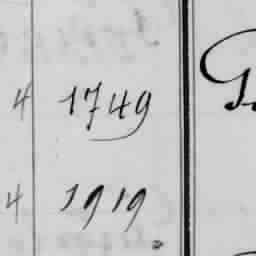 4 1749
4 1919